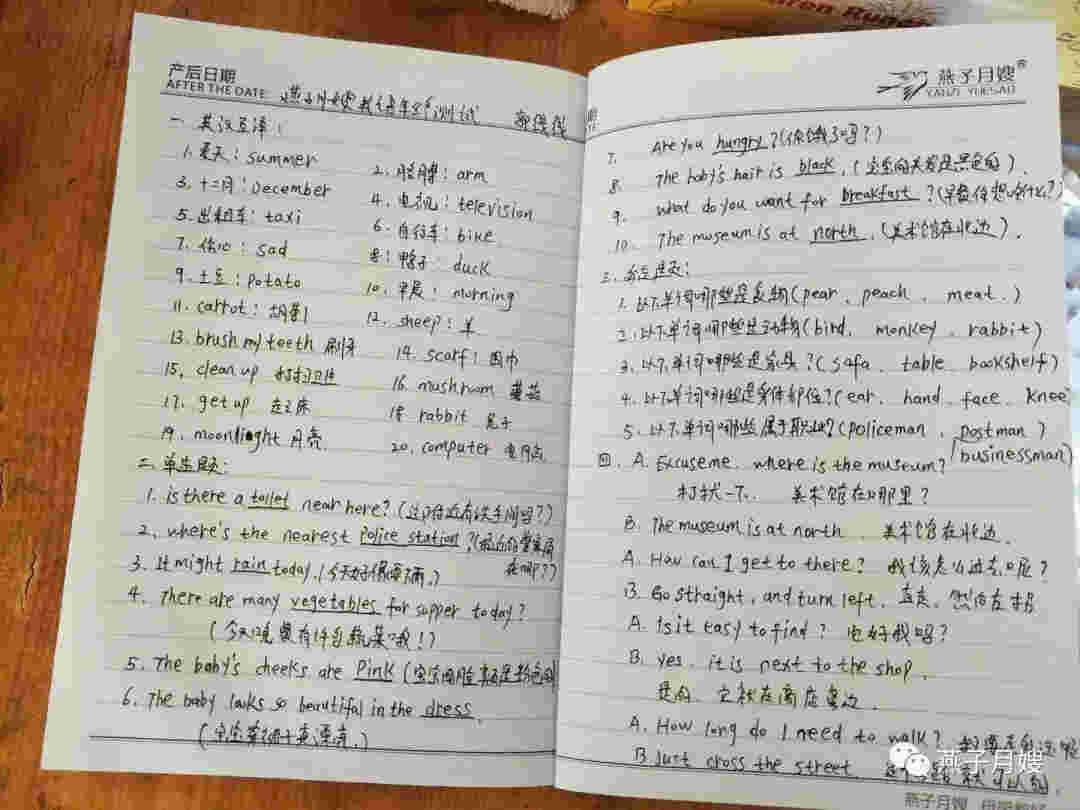 产后日期
AFTER THE DATE: 燕子月嫂 测试
一、英汉互译:
1. 夏天: summer 2. 胳膊: arm
3. 十二月: December 4. 电视: television
5. 出租车: taxi 6. 自行车: bike
7. 伤心: sad 8. 鸭子: duck
9. 土豆: potato 10. 早晨: morning
11. carrot: 胡萝卜 12. sheep: 羊
13. brush my teeth 刷牙 14. scarf: 围巾
15. clean up 打扫卫生 16. mushroom 蘑菇
17. get up 起床 18. rabbit 兔子
19. moonlinght 月亮 20. computer 电脑
二. 单选题:
1. is there a toilet near here? (这附近有洗手间吗?)
2. where's the nearest police station? (最近的警察局
在哪?)
3. It might rain today. (今天好像要下雨.)
4. There are many vegetables for supper today?
(今天晚餐有许多蔬菜哦!?)
5. The baby's cheeks are Pink (宝宝的脸 是粉色的
6. The baby looks so beautiful in the dress.
(宝宝穿裙子真漂亮.)
燕子月嫂®
YANZI YUESAO
7. Are you hungry? (你饿了吗?)
8. The baby's hair is black. (宝宝的头发是黑色的).
9. what do you want for breakfast? (早餐你想吃什么?)
10. The museum is at north. (美术馆在北边).
三. 多选题:
1. 以下单词哪些是食物(pear、peach、meat.)
2. 以下单词哪些是动物(bird、monkey、rabbit)
3. 以下单词哪些是家具?(safa、table、bookshelf)
4. 以下单词哪些是身体部位?(ear、hand、face、knee
5. 以下单词哪些属于职业?(policeman、postman)
businessman)
四. A. Excuse me. where is the museum?
打扰一下. 美术馆在哪里?
B. The museum is at north. 美术馆在北边.
A. How can I get to there? 我该怎么过去呢?
B. Go straight, and turn left. 直走, 然后左拐
A. is it easy to find? 也好找吗?
B. yes. it is next to the shop.
是的. 它就在商店旁边.
A. How long do I need to walk?
B Just cross the street.
燕子月嫂
燕子月嫂